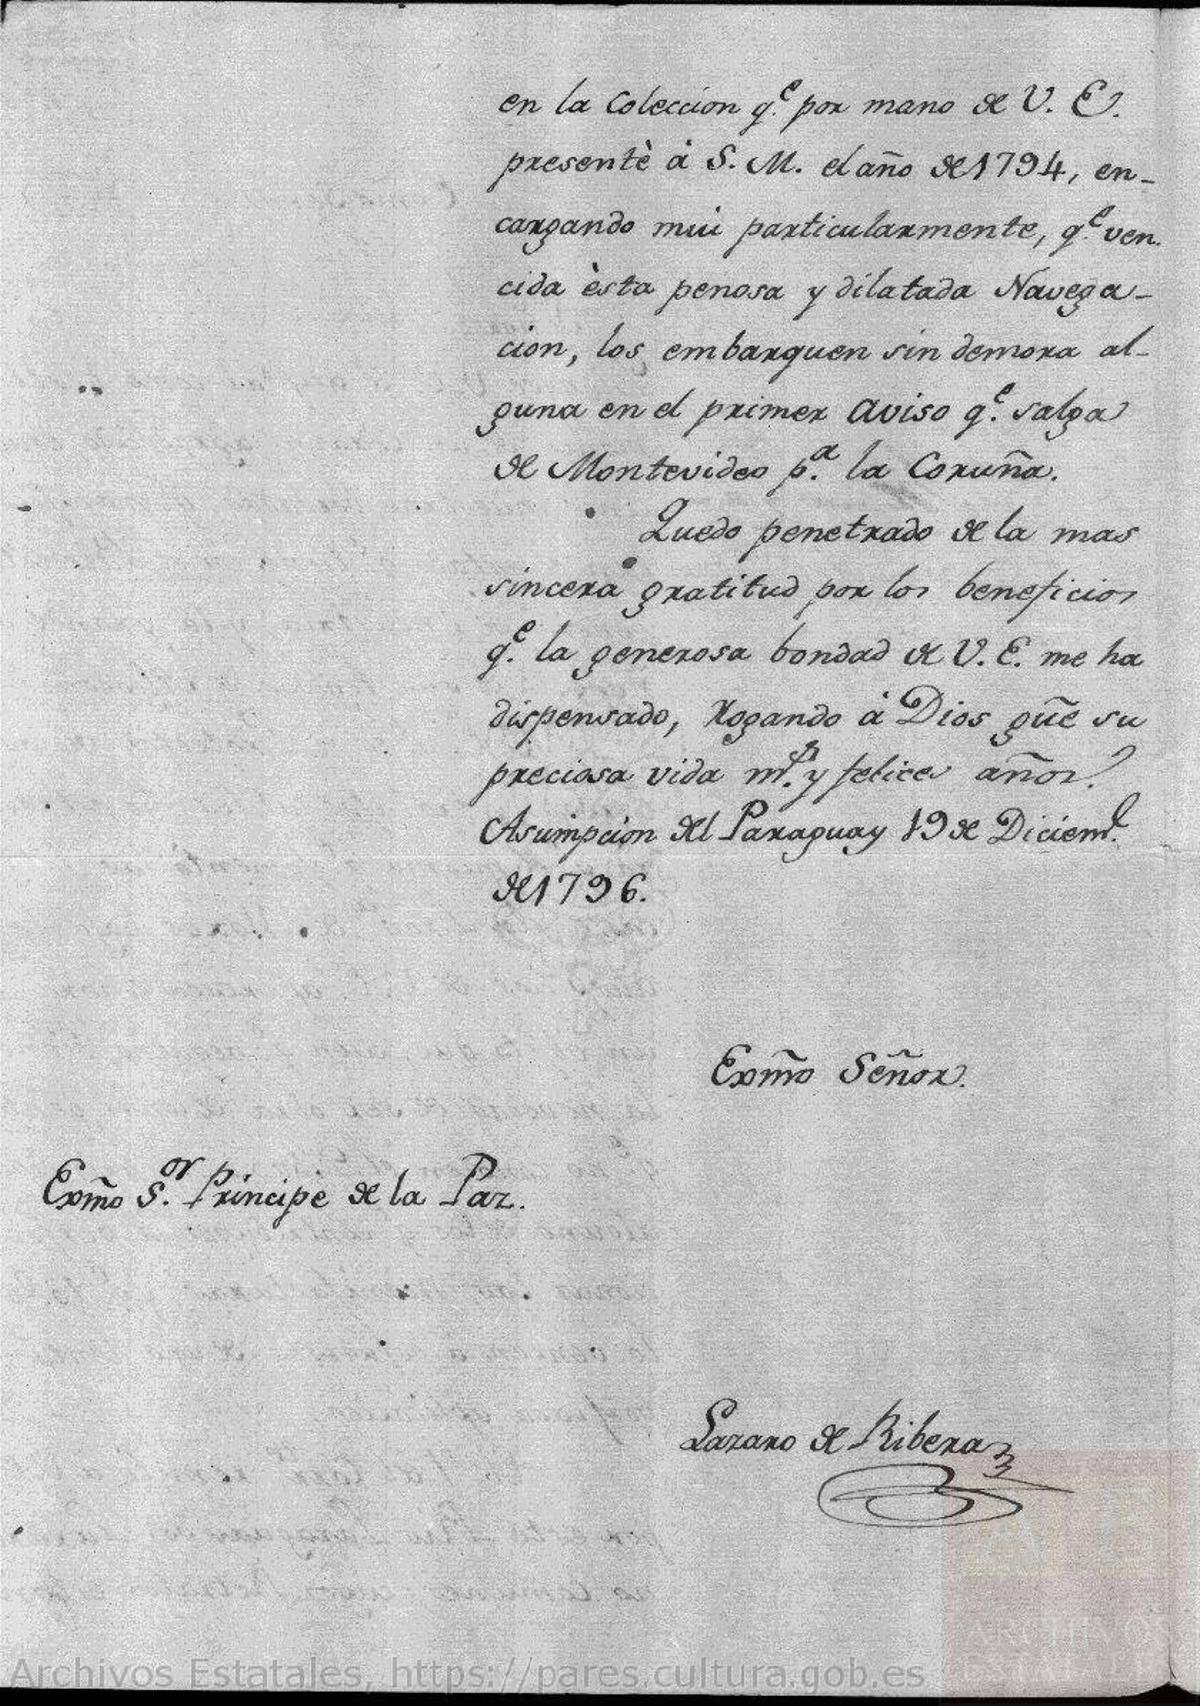 en la Coleccion q.e por mano de V. E.
presentè á S. M. el año de 1794, en-
cargando mui particularmente, q.e ven-
cida èsta penosa y dilatada Navega-
cion, los embarquen sin demora al-
guna en el primer aviso q.e salga
de Montevideo p.a la Coruña.
Quedo penetrado de la mas
sincera gratitud por los beneficios
q.e la generosa bondad de V. E. me ha
dispensado, Rogando á Dios gũe su
preciosa vida m.s y felices años.
Asumpcion del Paraguay 19 de Diciem.e
de 1796.
Exm̃o Señor.
Exm̃o S.or Príncipe de la Paz.
Lazaro de Ribera
ARCHIVOS
ESTATALES
Archivos Estatales, https://pares.cultura.gob.es